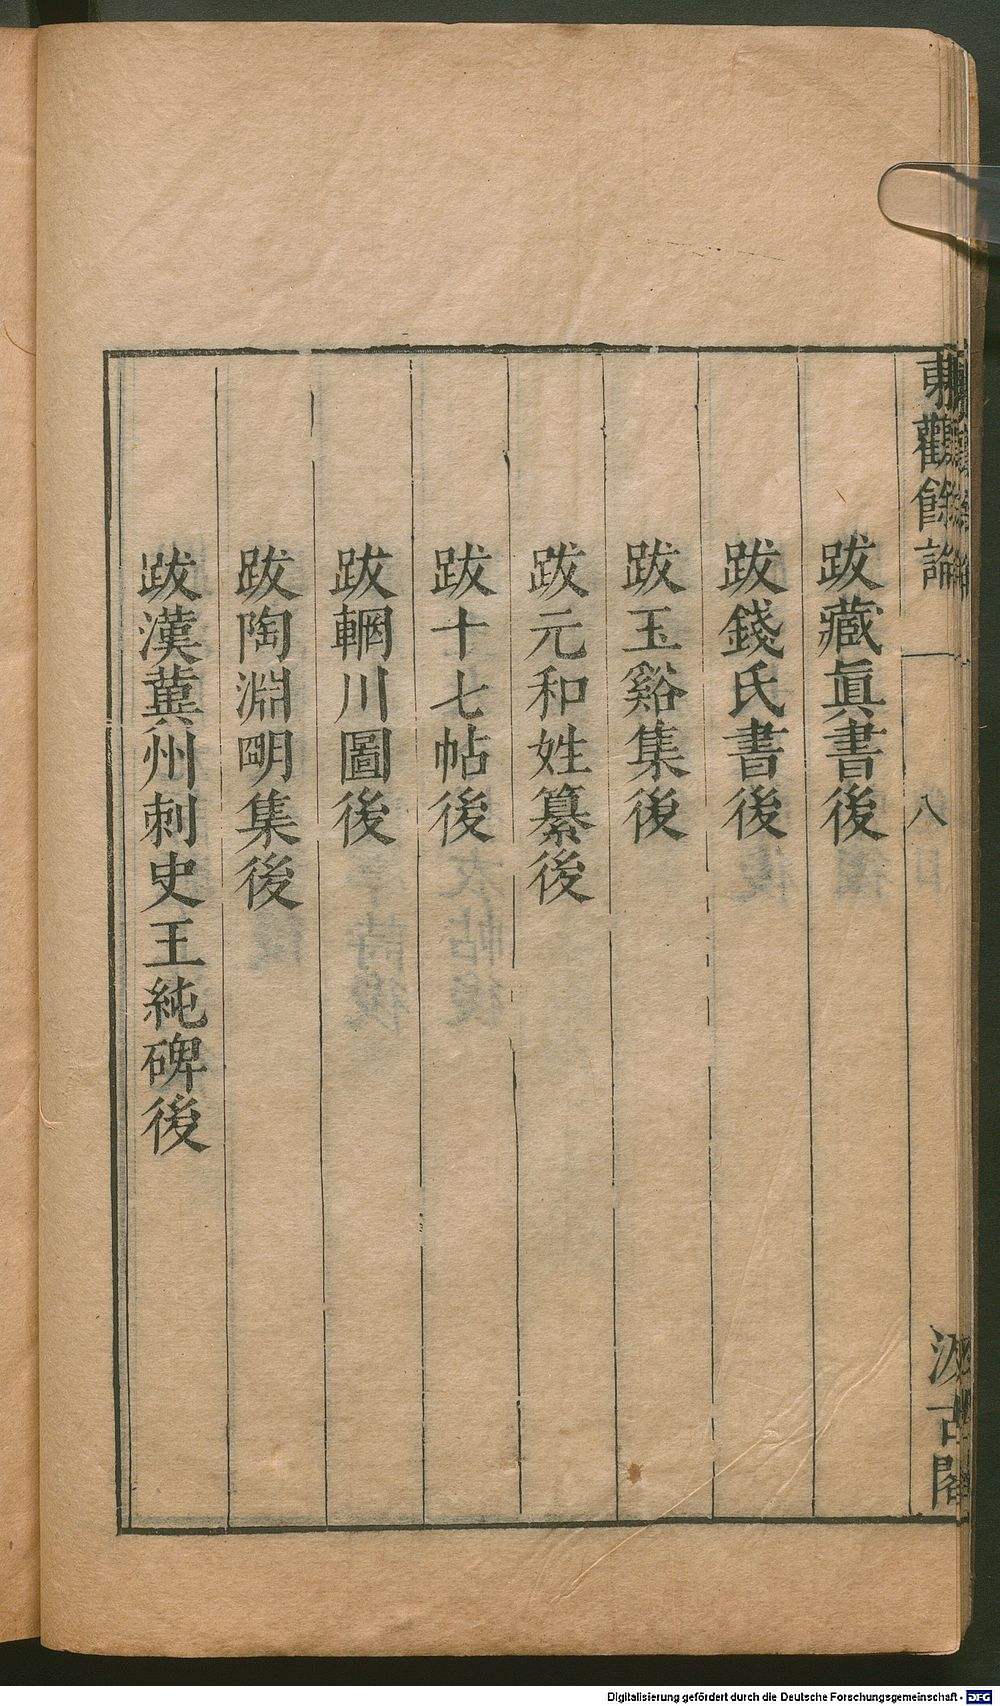 東觀餘論
八
汲古閣
跋藏眞書後
跋錢氏書後
跋玉谿集後
跋元和姓纂後
跋十七帖後
跋輞川圖後
跋陶淵明集後
跋漢冀州刺史王純碑後
Digitalisierung gefördert durch die Deutsche Forschungsgemeinschaft - DFG